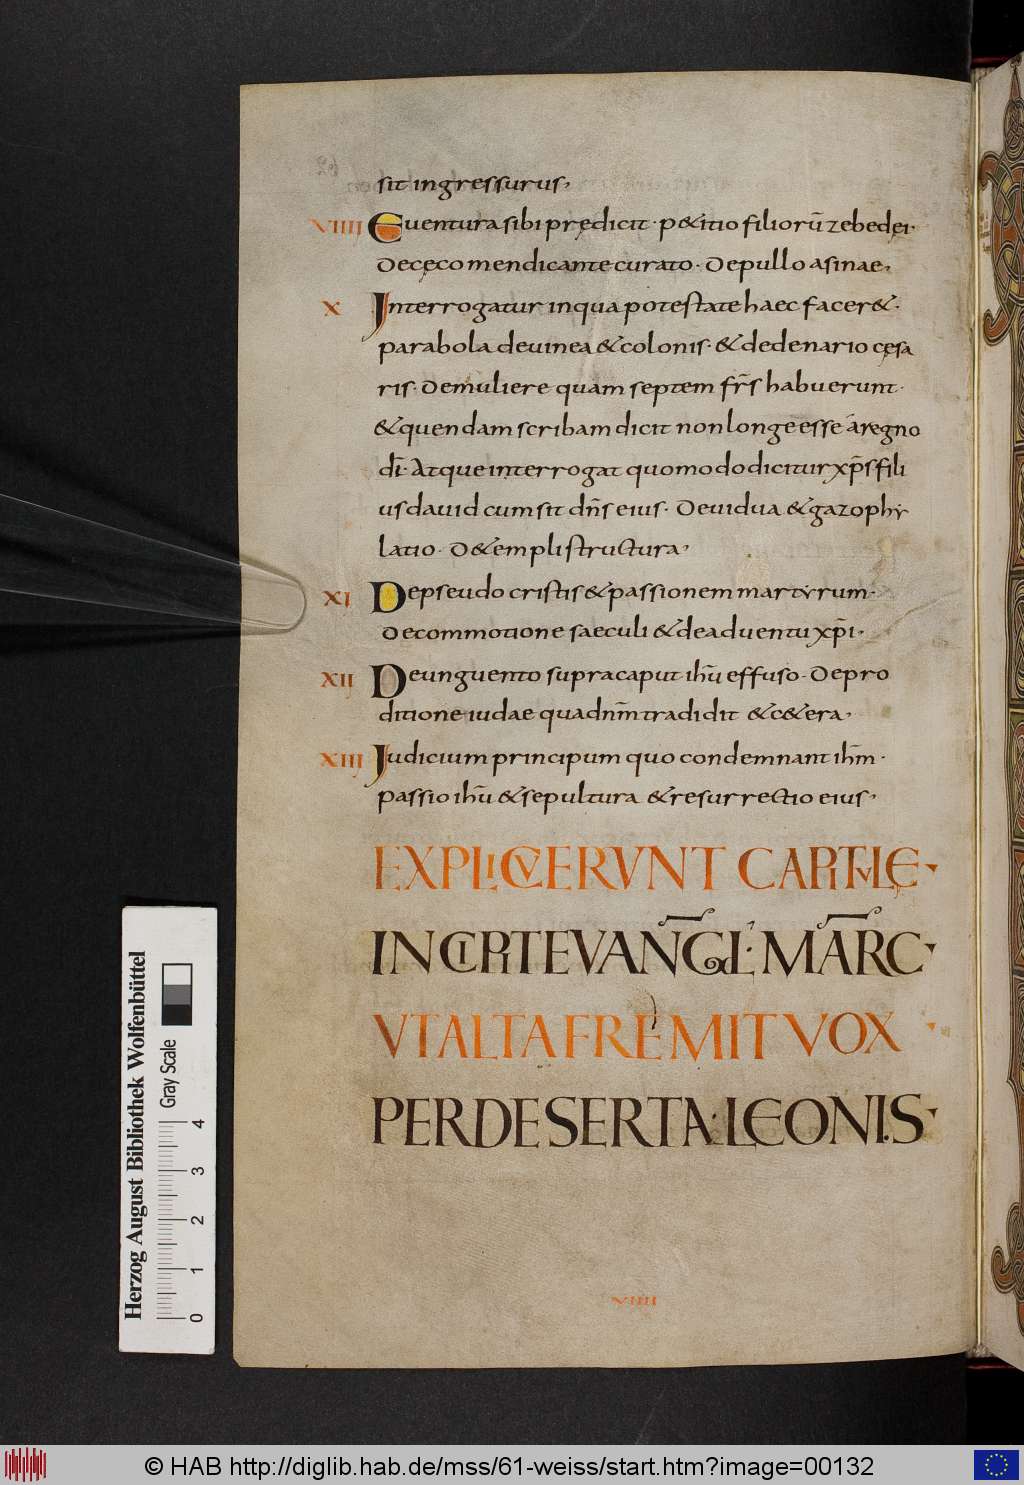 sit ingressurus,
VIIII Euentura sibi prędicit · p&itio filiorū zebedęi·
De cęco mendicante curato · De pullo asinae,
X Interrogatur in qua potestate haec facer&·
parabola de uinea & colonis · & de denario cęsa
ris · De muliere quam septem fr̄s habuerunt·
& quendam scribam dicit non longe esse a regno
dī· Atque interrogat quomodo dicitur xp̄s fili
us dauid cum sit dn̄s eius · De uidua & gazophy
latio · De templi structura,
XI De pseudo cristis & passionem martyrum·
De commotione saeculi & de aduentu xp̄i·
XII De unguento supra caput ihū effuso · De pro
ditione iudae qua dn̄m tradidit & c&era,
XIII Judicium principum quo condemnant ihm̄·
passio ihū & sepultura & resurrectio eius,
EXPLICVERVNT CAPITVLĘ
INCIPIT EVANGL̄· MARC̄
VT ALTA FREMIT VOX
PER DESERTA· LEONIS
VIIII
Herzog August Bibliothek Wolfenbüttel
Gray Scale
0 1 2 3 4
© HAB http://diglib.hab.de/mss/61-weiss/start.htm?image=00132